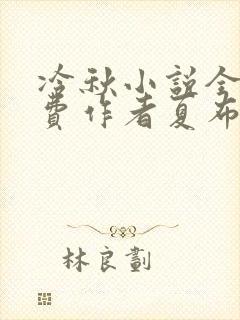 冷秋小説全
費作者夏布
林良劃